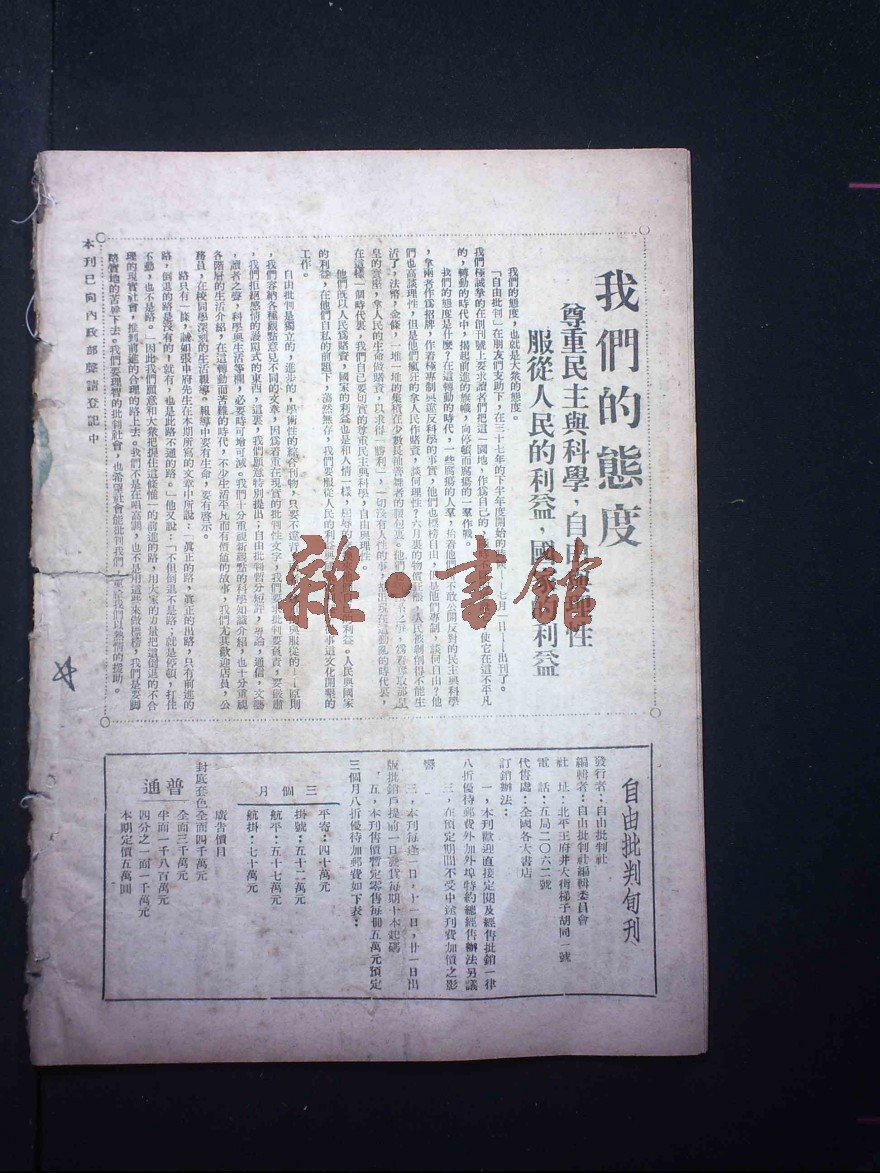 我們的態度
尊重民主與科學，自由與理性
服從人民的利益，國家的利益
我們的態度，也就是大衆的態度。
「自由批判」在朋友們支助下，在三十七年的下半年度開始的時候——七月一日——出刊了。
我們極誠摯的在創刊號上要求讀者們把這一園地，作爲自己的，使它在這不平凡
的，轉動的時代中，揭起前進的旗幟，向停頓而腐瘍的一羣作戰。
我們的態度是什麼？在這轉動的時代，一些腐瘍的人羣，抬着他們不敢公開反對的民主與科學
，拿兩者作爲招牌，作着極專制與違反科學的事實，他們也標榜自由，但是他們專制，談何自由？他
們也高談理性，但是他們瘋狂的拿人民作賭資，談何理性？六月裏的物價狂漲，人民被剝削得不能生
活了，法幣，金條，一堆一堆的集積在少數長袖善舞者的腰包裏。他們
皇的寶座，拿人民的生命做賭資，以求得「勝利」，一切沒有人性的事，都出現在這動亂的時代裏，
在這樣一個時代裏，我們自己要切實的尊重民主與科學，自由與理性。
他們既以人民爲賭資，國家的利益也是和人情一樣，人民與國家
的利益，在他們自私的前題下，蕩然無存，我們要服從人民的利益與從事這文化開墾的
工作。
自由批判是獨立的，進步的，學術性的綜合刊物，只要不違背與服從的——原則
，我們容納各種觀點意見不同的文章，因爲着重在現實的批判性文字，我們要求批判要負責，要嚴肅
，我們拒絕感情的謾罵式的東西，這裏，我們願意特別提出：自由批判暫分短評，專論，通信，文藝
，讀者之聲，科學與生活等欄，必要時可增可減。我們十分重視新觀點的科學知識介紹，也十分重視
各階層的生活介紹，在這轉動而苦難的時代，不少生活平凡而有價值的故事，我們尤其歡迎店員，公
務員，在校同學深刻的生活報導。報導中要有生命，要有啓示。
路只有一條，誠如張申府先生在本期所寫的文章中所說：「眞正的路，眞正的出路，只有前進的
路，倒退的路是沒有的，就有，也是此路不通的路。」他又說：「不但倒退不是路；就是停頓，打住
不動，也不是路。」因此我們願意和大衆把握住這條惟一的前進的路，用大衆的力量把這倒退的不合
理的現實社會，推到前進的合理的路上去。我們不是在唱高調，也不是用這些來做標榜，我們是要脚
踏實地的苦幹下去。我們要理智的批判社會，也希望社會能批判我們，並給我們以熱情的援助。
本刊已向內政部聲請登記中
自由批判旬刊
發行者：自由批判社
編輯者：自由批判社編輯委員會
社　址：北平王府井大街梯子胡同一號
電　話：五局二〇六二號
代售處：全國各大書店
訂銷辦法：
一，本刊歡迎直接定閱及經售批銷一律
八折優待郵費外加外埠特約總經售辦法另議
二，在預定期間不受中途刊費加價之影
響
三，本刊每逢一日，十一日，廿一日出
版批銷戶提前一日發貨每期十本起碼
五，本刊售價暫定零售每冊五萬元預定
三個月八折優待加郵費如下表：
三個月
平寄：四十萬元
掛號：五十二萬元
航平：五十七萬元
航掛：七十萬元
廣告價目
封底套色全面四千萬元
普通
全面三千萬元
半面一千八百萬元
四分之一面一千萬元
本期定價五萬圓
雜·書館